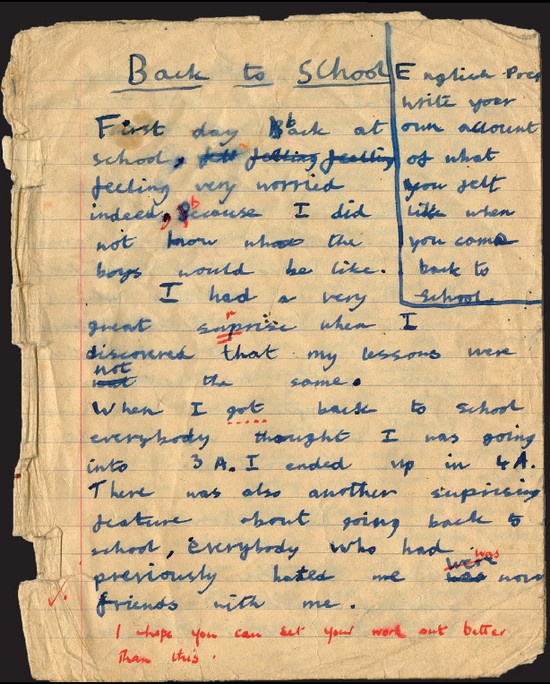 Back to School
First day Back at
school, felt feeling
feeling very worried
indeed, because I did
not know what the
boys would be like.
I had a very
great suprise when I
discovered that my lessons were
not
the same.
When I got back to school
everybody thought I was going
into 3A. I ended up in 4A.
There was also another suprising
feature about going back to
school, everybody who had
was
previously hated me were now
friends with me.
I hope you can set your work out better
than this.
English Prep
write your
own account
of what
you felt
like when
you came
back to
school.